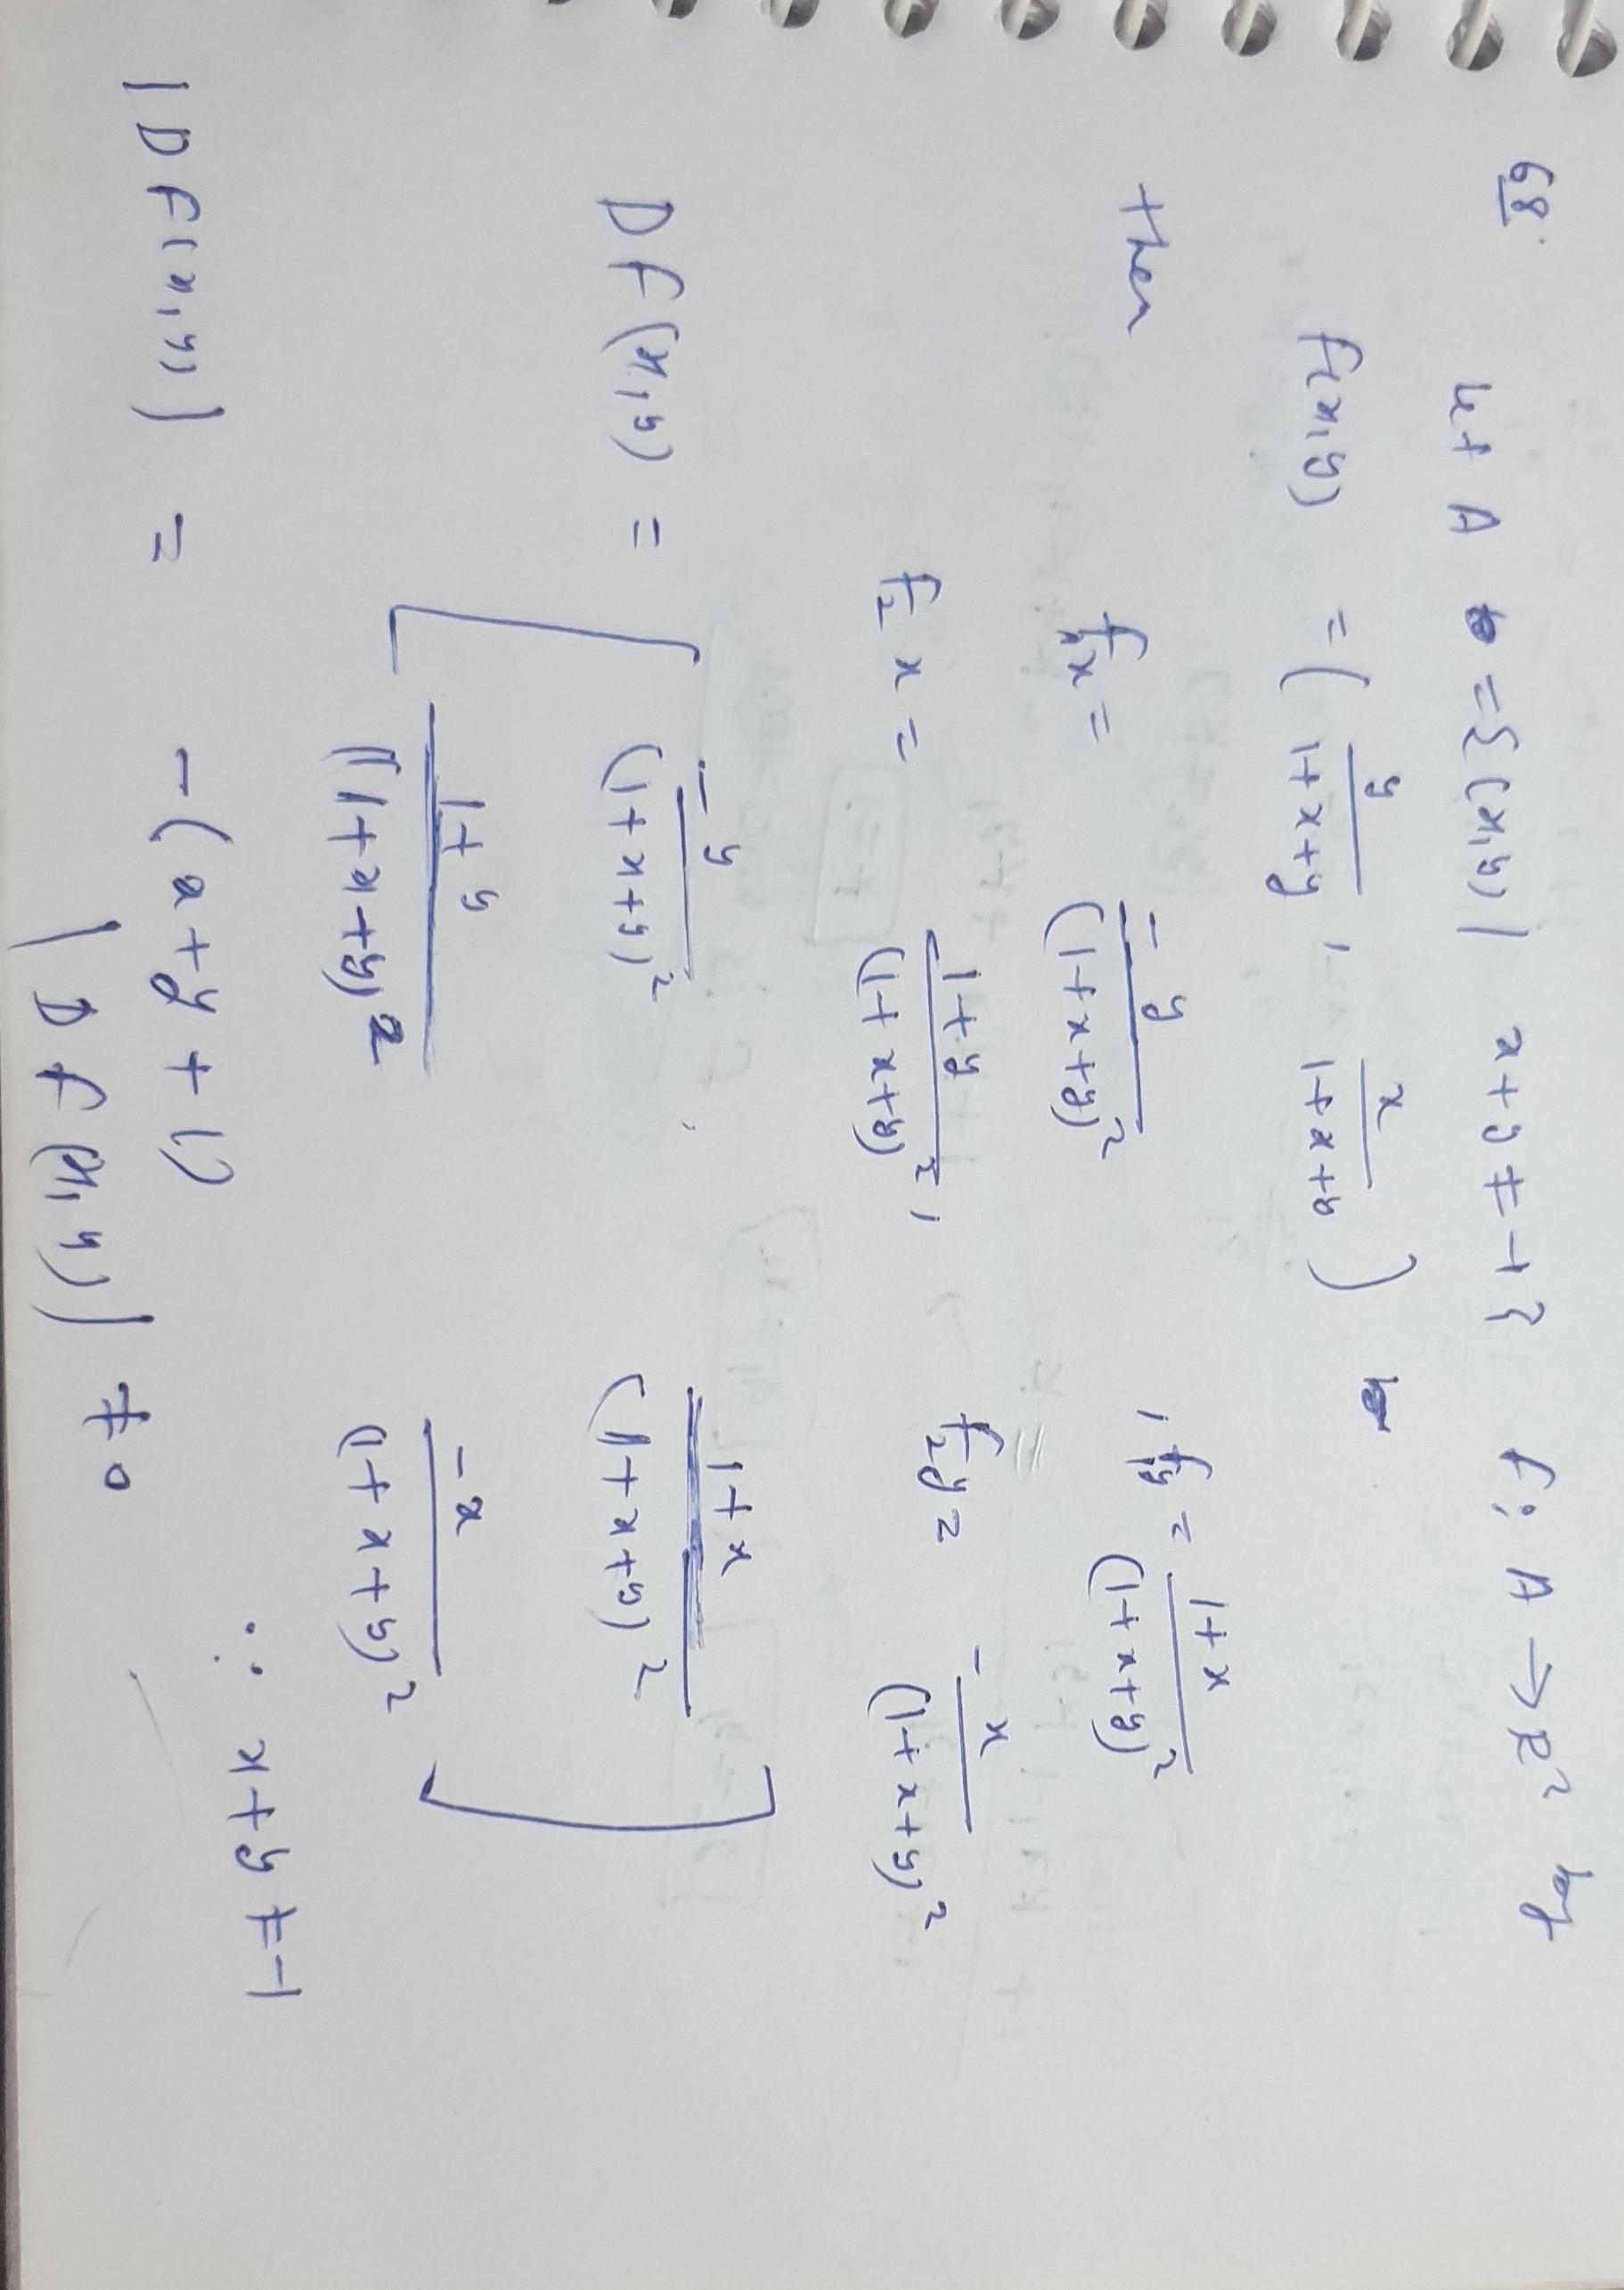 68.
let A = {(x,y) | x+y ≠ -1} f: A → R² by
f(x,y) = ( y/(1+x+y) , x/(1+x+y) )
then f₁x = -y/(1+x+y)² , f₁y = (1+x)/(1+x+y)²
f₂x = (1+y)/(1+x+y)² , f₂y = -x/(1+x+y)²
DF(x,y) = [ -y/(1+x+y)² (1+x)/(1+x+y)²
(1+y)/(1+x+y)² -x/(1+x+y)² ]
|DF(x,y)| = -(x+y+1) ∵ x+y ≠ -1
|DF(x,y)| ≠ 0